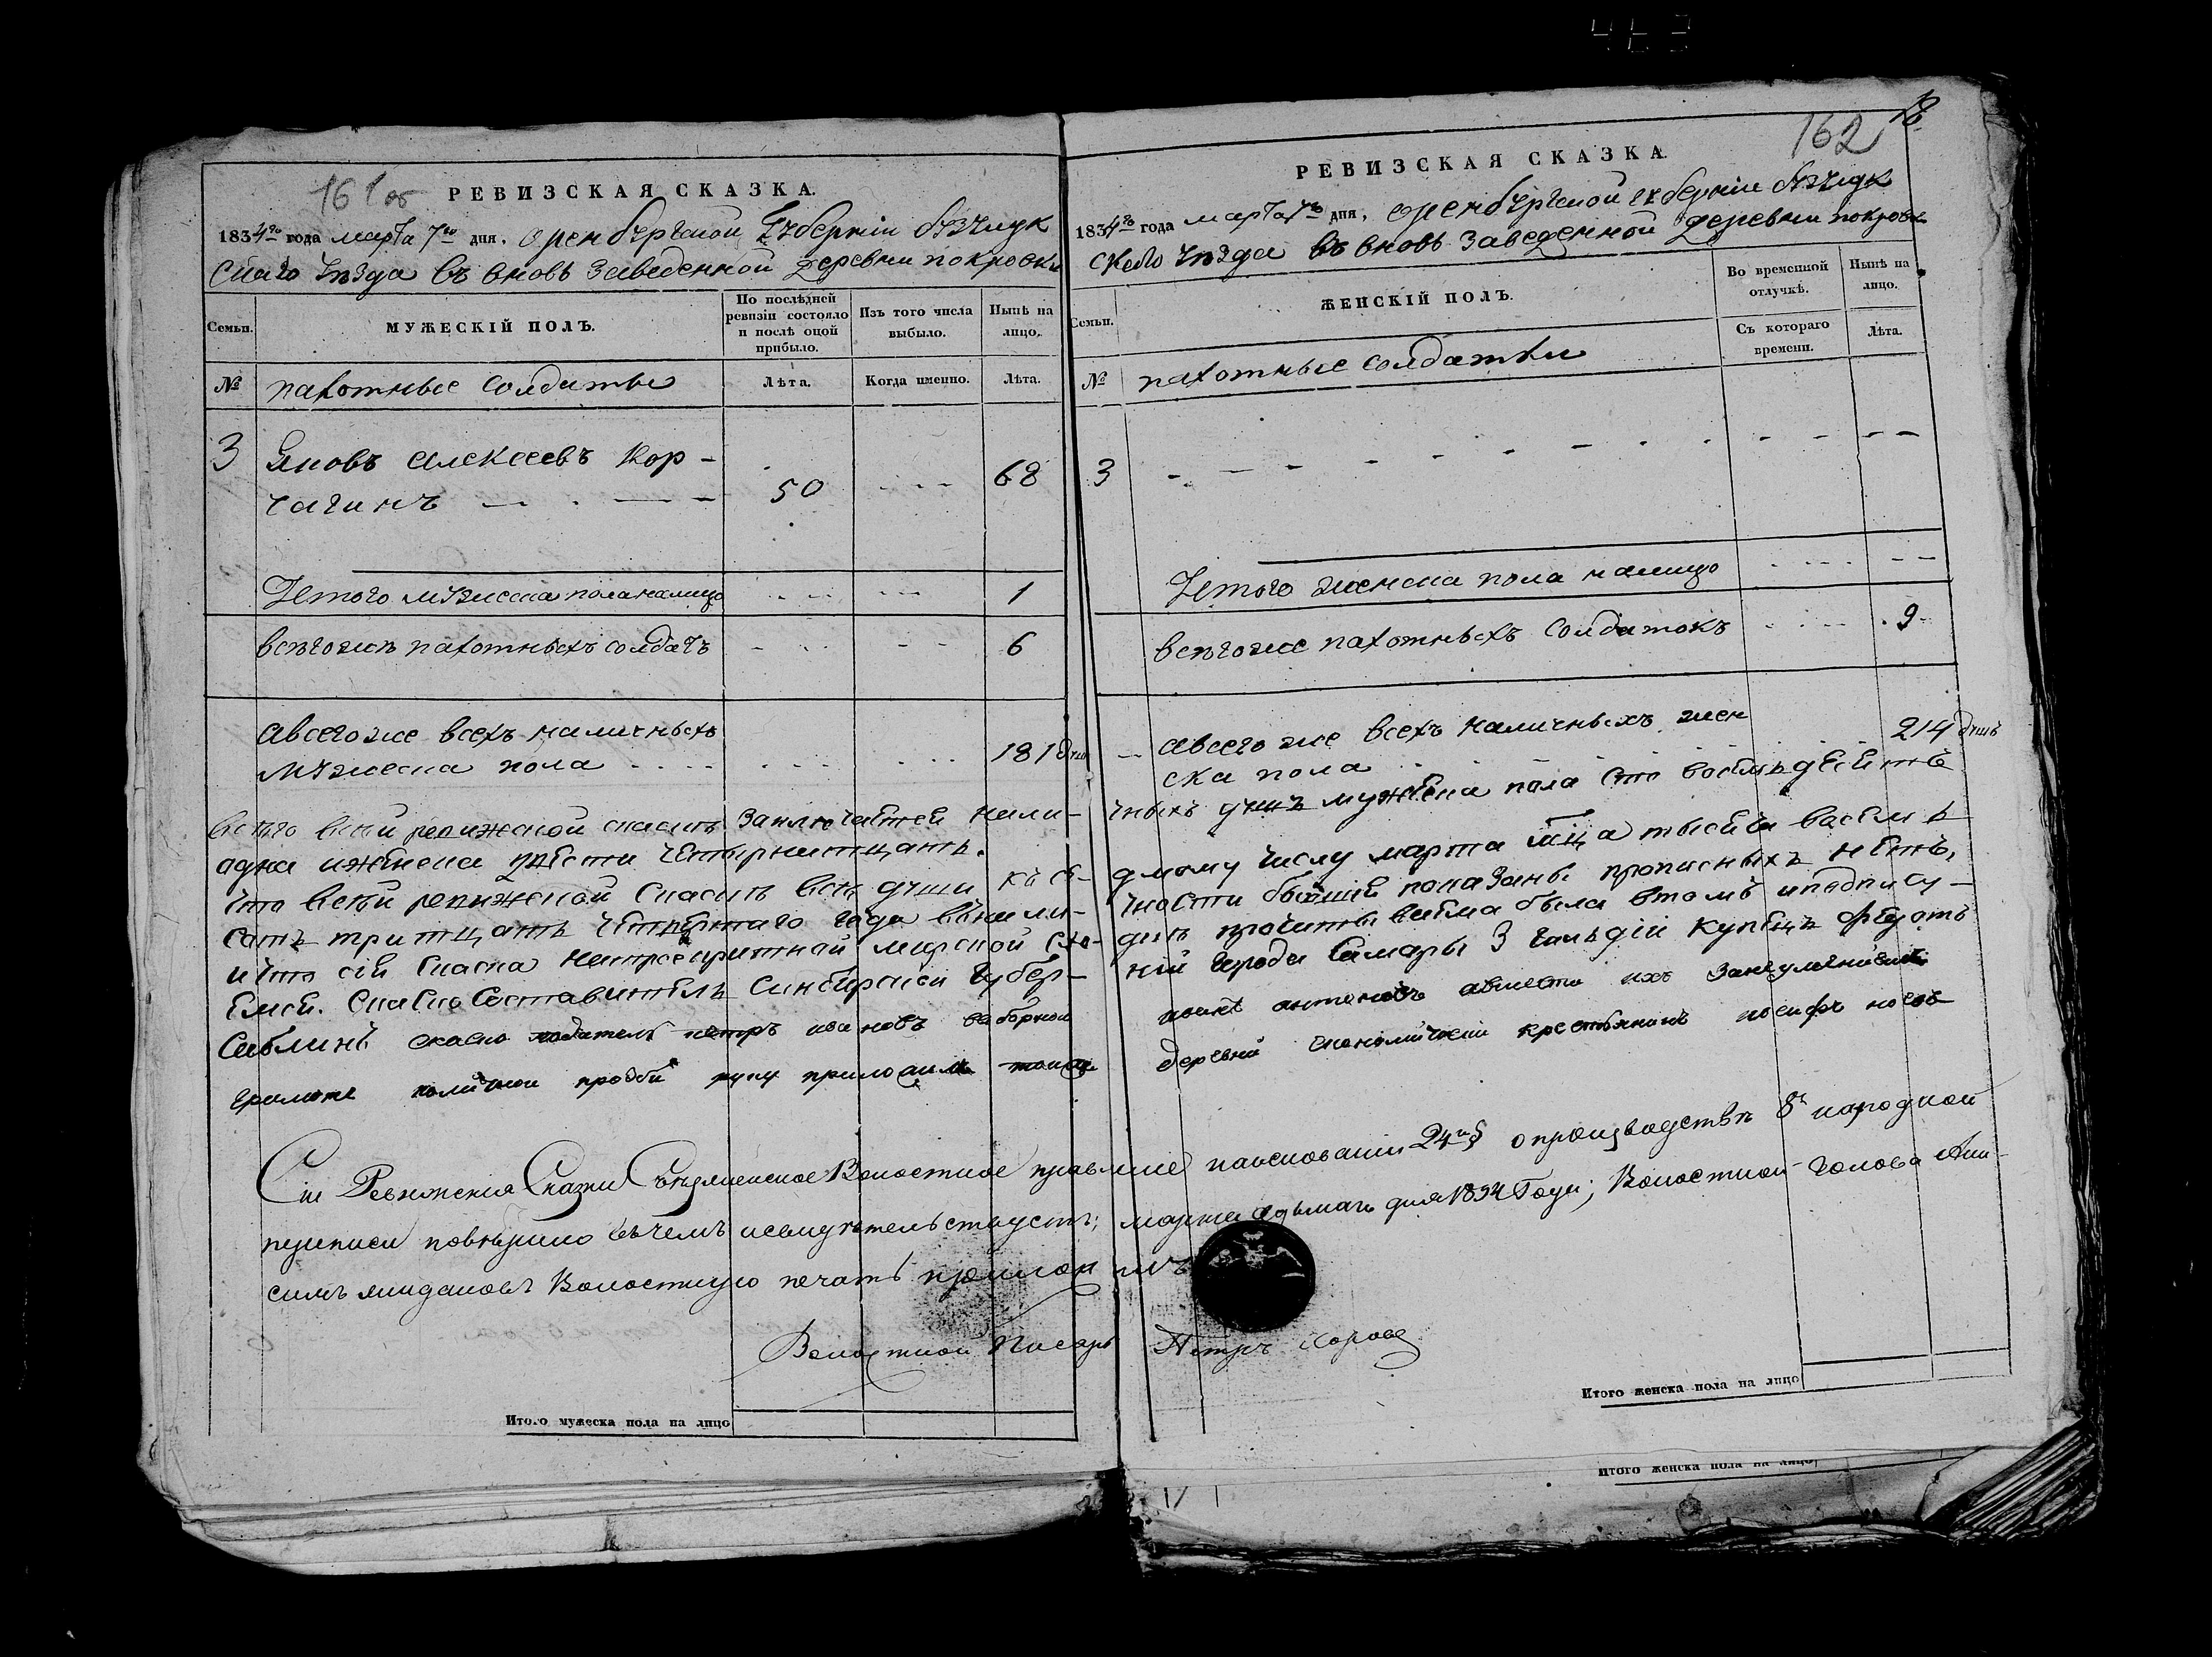 161 об
РЕВИЗСКАЯ СКАЗКА.
1834го года марта 7го дня. оренбургской Губернии бузулук
скаго уезда въ вновь заведенной деревни покровки
Семьи.
МУЖЕСКІЙ ПОЛЪ.
По послѣдней ревизіи состояло и послѣ оной прибыло.
Изъ того числа выбыло.
Нынѣ на лицо.
№
пахотные солдаты
Лѣта.
Когда именно.
Лѣта.
3
Яковъ алексеевъ Кор-
чагинъ
50
68
Итого мужеска пола налицо
1
всегоже пахотныхъ солдатъ
6
авсего же всехъ наличныхъ
мужеска пола
181 душ
162
18
РЕВИЗСКАЯ СКАЗКА.
1834го года марта 7го дня. оренбургской губернии бузулук
скаго уезда въ вновь заведенной деревни покровки
Семьи.
ЖЕНСКІЙ ПОЛЪ.
Во временной отлучкѣ.
Нынѣ на лицо.
Съ котораго времени.
Лѣта.
№
пахотные солдатки
3
Итого женска пола налицо
всегоже пахотныхъ солдатокъ
9
авсего же всехъ наличныхъ жен
ска пола
214 душъ
всего всей ревижской скаски заключаитси нали- чныхъ душъ мужеска пола сто восемьдесятъ
адна иженска двести четырнатцать.
что всей ревижской скаски все души къ се- дмому числу марта мца тысеча васемь
сотъ тритцать четвертаго года вналич- ности бывшие показаны прописныхъ нетъ,
ичто сия скаска мирской схо- де прочитывима была втомъ иподпису-
емся. Скаско Составитель Синбирской губер- ний города Самары 3 гильдии купецъ федотъ
саблинъ скаско податель петръ ивановъ иванъ антоновъ авместо ихъ
грамоте поличной прозби руку приложилъ тоиже деревни економический крестьянинъ иосифъ
Сiи Ревижскiя Сказки Волостное правление наосновании 24го § опроизводстве 8й народной
переписи поверило въчемъ исвидетельствуетъ; марта седьмаго дня 1834 Года; Волостной голова
симъ Волостную печать приложилъ
Волостной Писарь Петръ
Итого мужеска пола на лицо
Итого женска пола на лицо
Итого женска пола на лицо